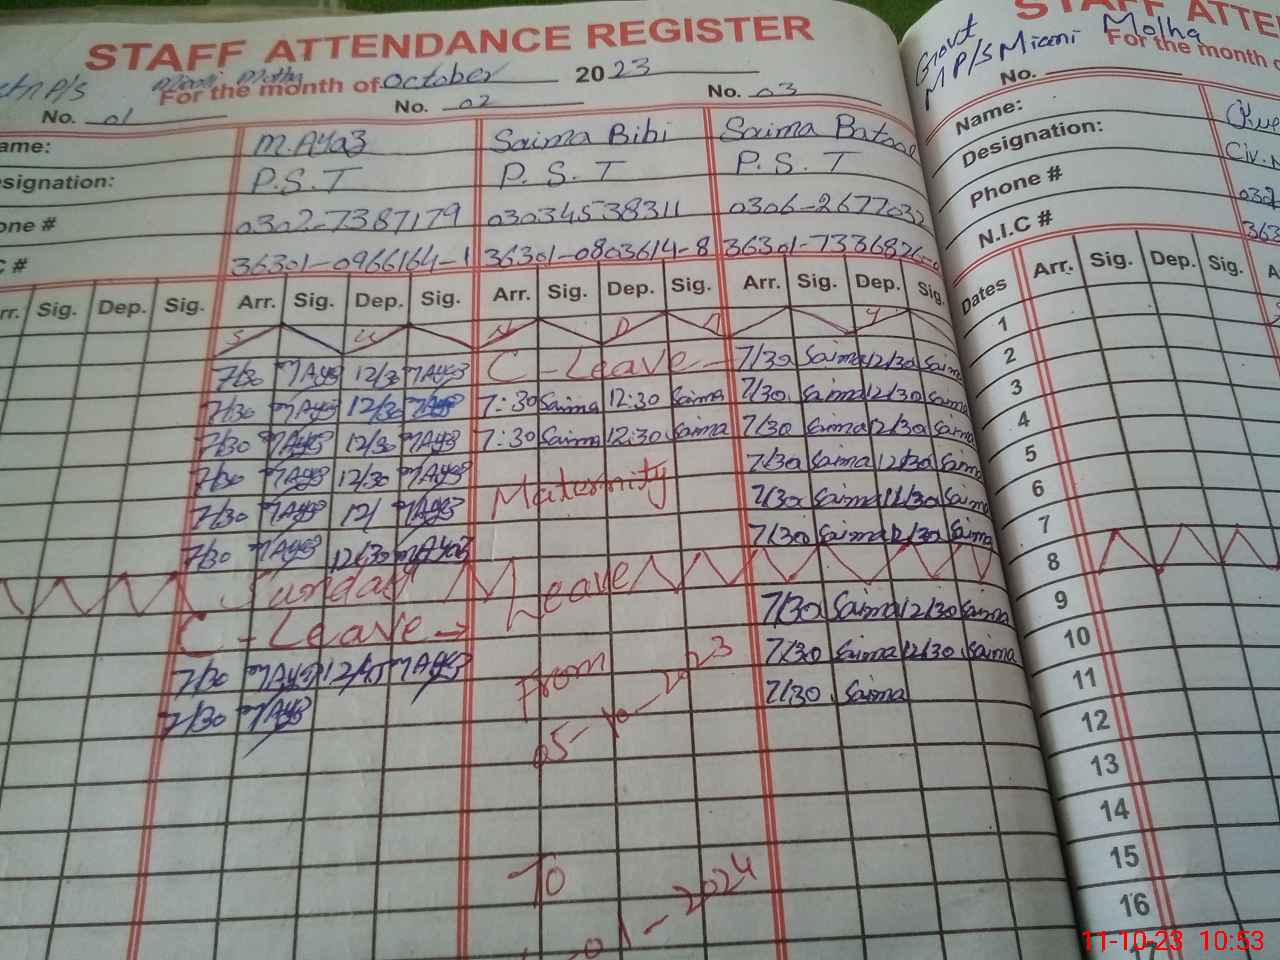 STAFF ATTENDANCE REGISTER
For the month of October 2023
No. 01 No. 02 No. 03
M.Ayaz Saima Bibi Saima Batool
P.S.T P. S. T P. S. T
0302-7387179 03034538311 0306-2677032
36301-0966164-1 36301-0803614-8 36301-7336826
Sig. Dep. Sig. Arr. Sig. Dep. Sig. Arr. Sig. Dep. Sig. Arr. Sig. Dep. Sig.
S U N D A Y
7/30 MAyaz 12/30 MAyaz C-Leave 7/30 Saima 12/30 Saima
7/30 MAyaz 12/30 MAyaz 7:30 Saima 12:30 Saima 7/30 Saima 12/30 Saima
7/30 MAyaz 12/30 MAyaz 7:30 Saima 12:30 Saima 7/30 Saima 12/30 Saima
7/30 MAyaz 12/30 MAyaz Maternity 7/30 Saima 12/30 Saima
7/30 MAyaz 12/ MAyaz 7/30 Saima 12/30 Saima
7/30 MAyaz 12/30 MAyaz 7/30 Saima 12/30 Saima
Sunday Leave
C-Leave 7/30 Saima 12/30 Saima
7/30 MAyaz 12/45 MAyaz From 7/30 Saima 12/30 Saima
7/30 MAyaz 05-10-2023 7/30 Saima
To
01-2024
STAFF ATTE
Govt
M P/S Miani Molha
For the month o
No.
Name:
Designation: Civ.
Phone #
N.I.C # 363
Dates Arr. Sig. Dep. Sig.
1
2
3
4
5
6
7
8
9
10
11
12
13
14
15
16
17
11-10-23 10:53